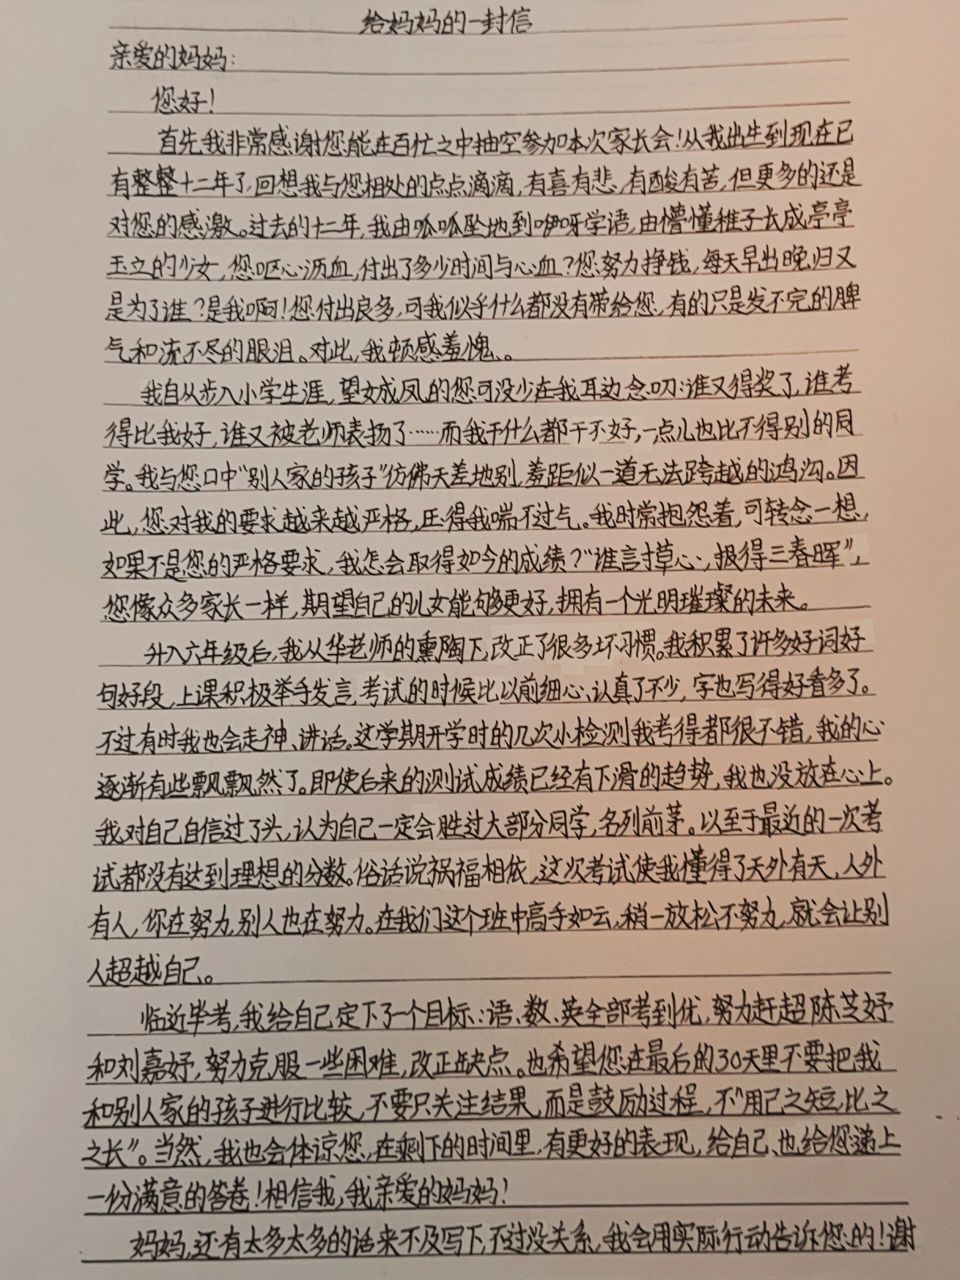 给妈妈的一封信
亲爱的妈妈：
您好！
首先我非常感谢您能在百忙之中抽空参加本次家长会！从我出生到现在已
有整整十二年了，回想我与您相处的点点滴滴，有喜有悲，有酸有苦，但更多的还是
对您的感激。过去的十二年，我由呱呱坠地到咿呀学语，由懵懂稚子长成亭亭
玉立的少女，您呕心沥血，付出了多少时间与心血？您努力挣钱，每天早出晚归又
是为了谁？是我啊！您付出良多，可我似乎什么都没有带给您，有的只是发不完的脾
气和流不尽的眼泪。对此，我顿感羞愧。
我自从步入小学生涯，望女成凤的您可没少在我耳边念叨：谁又得奖了，谁考
得比我好，谁又被老师表扬了……而我干什么都干不好，一点儿也比不得别的同
学。我与您口中“别人家的孩子”仿佛天差地别，差距似一道无法跨越的鸿沟。因
此，您对我的要求越来越严格，压得我喘不过气。我时常抱怨着，可转念一想，
如果不是您的严格要求，我怎会取得如今的成绩？“谁言寸草心，报得三春晖”，
您像众多家长一样，期望自己的儿女能够更好，拥有一个光明璀璨的未来。
升入六年级后，我从华老师的熏陶下，改正了很多坏习惯。我积累了许多好词好
句好段，上课积极举手发言，考试的时候比以前细心、认真了不少，字也写得好看多了。
不过有时我也会走神、讲话。这学期开学时的几次小检测我考得都很不错，我的心
逐渐有些飘飘然了。即使后来的测试成绩已经有下滑的趋势，我也没放在心上。
我对自己自信过了头，认为自己一定会胜过大部分同学，名列前茅。以至于最近的一次考
试都没有达到理想的分数。俗话说祸福相依，这次考试使我懂得了天外有天，人外
有人，你在努力，别人也在努力。在我们这个班中高手如云，稍一放松不努力，就会让别
人超越自己。
临近毕考，我给自己定下了一个目标：语、数、英全部考到优，努力赶超陈芝妤
和刘嘉妤，努力克服一些困难，改正缺点。也希望您在最后的30天里不要把我
和别人家的孩子进行比较，不要只关注结果，而是鼓励过程，不“用己之短，比之
之长”。当然，我也会体谅您，在剩下的时间里，有更好的表现，给自己、也给您递上
一份满意的答卷！相信我，我亲爱的妈妈！
妈妈，还有太多太多的话来不及写下，不过没关系，我会用实际行动告诉您的！谢